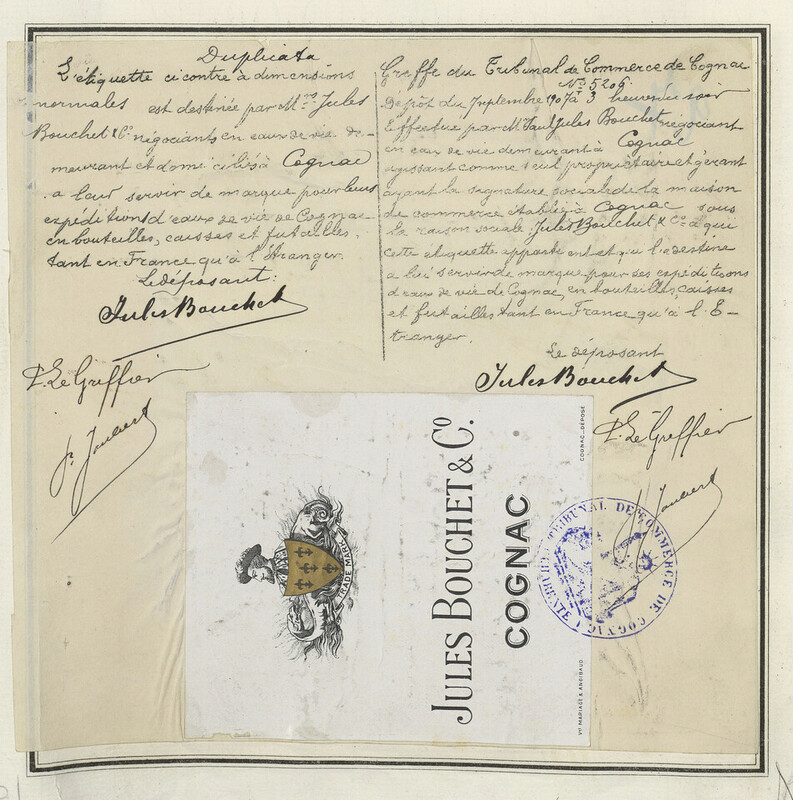 Duplicata
L'étiquette ci contre à dimensions
normales est destinée par Mrs Jules
Bouchet & Co négociants en eaux de vie de-
meurant et domiciliés à Cognac
a leur servir de marque pour leurs
expéditions d'eaux de vie de Cognac
en bouteilles, caisses et futailles,
tant en France qu'à l'étranger.
Le déposant:
Jules Bouchet
P. Le Greffier
Greffe du Tribunal de Commerce de Cognac
No 5206
Dépôt du 7 septembre 1907 à 3 heures du soir
Effectué par Mr Paul Jules Bouchet négociant
en eau de vie demeurant à Cognac
agissant comme seul propriétaire et gérant
ayant la signature sociale de la maison
de commerce établie à Cognac sous
la raison sociale Jules Bouchet & Co à qui
cette étiquette appartient et qui la destine
a lui servir de marque pour ses expéditions
d'eaux de vie de Cognac, en bouteilles, caisses
et futailles tant en France qu'à l'E-
tranger.
Le déposant
Jules Bouchet
P. Le Greffier
JULES BOUCHET & Co.
COGNAC
TRADE MARK
COGNAC_DÉPOSÉ
Vve MARIAGE & ANDIBAUD
TRIBUNAL DE COMMERCE DE COGNAC